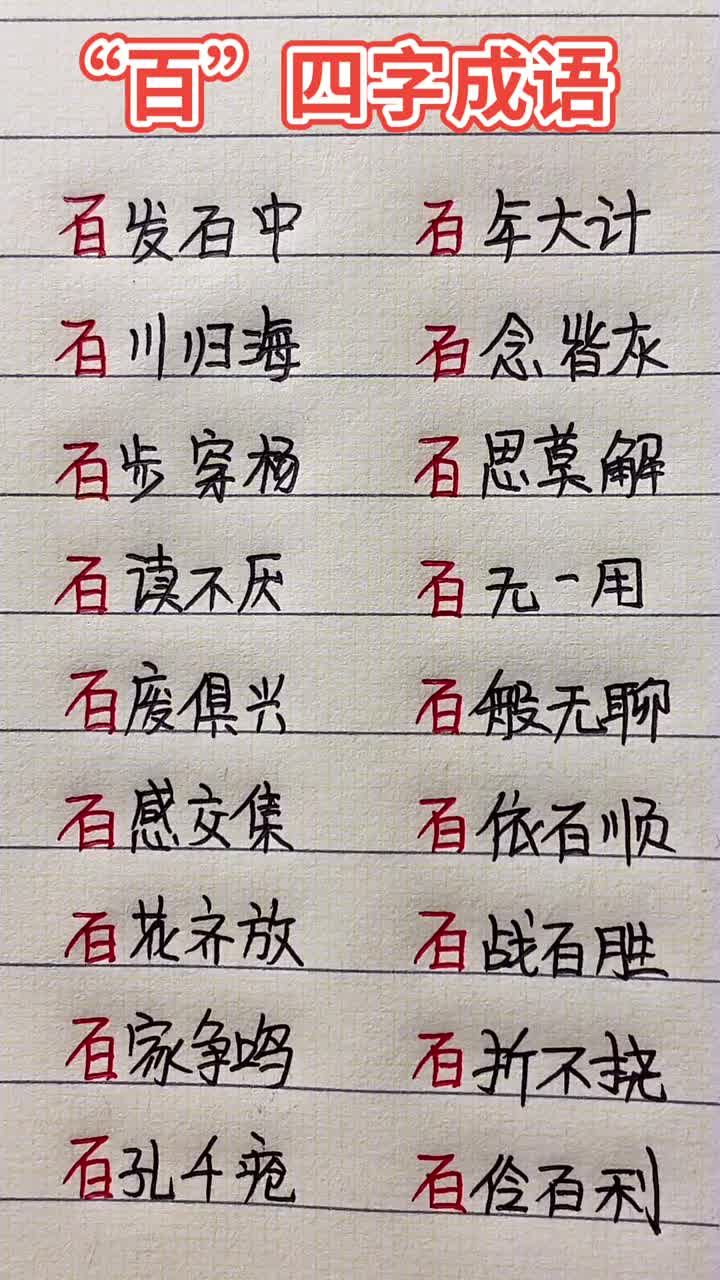 “百”四字成语
百发百中 百年大计
百川归海 百念皆灰
百步穿杨 百思莫解
百读不厌 百无一用
百废俱兴 百般无聊
百感交集 百依百顺
百花齐放 百战百胜
百家争鸣 百折不挠
百孔千疮 百伶百利